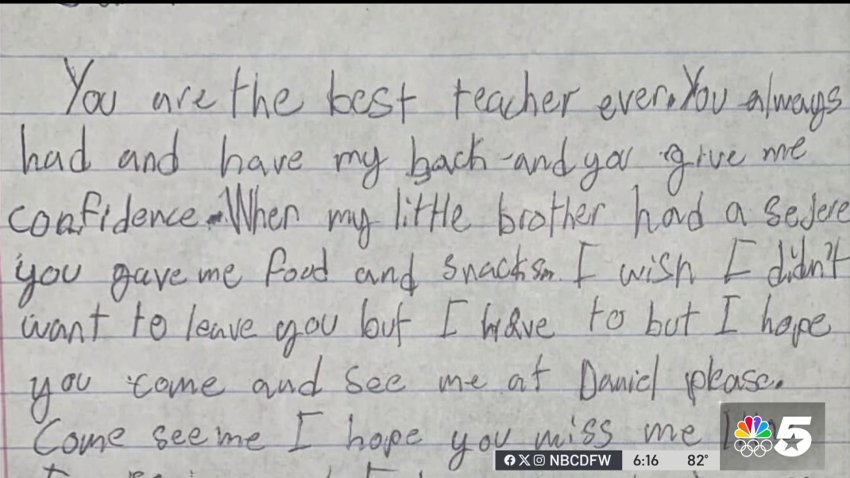 You are the best teacher ever. You always
had and have my back and you give me
confidence. When my little brother had a sejere
you gave me food and snacks. I wish I didn't
want to leave you but I have to but I hope
you come and see me at Daniel please.
Come see me I hope you miss me
NBCDFW 6:16 82°
5